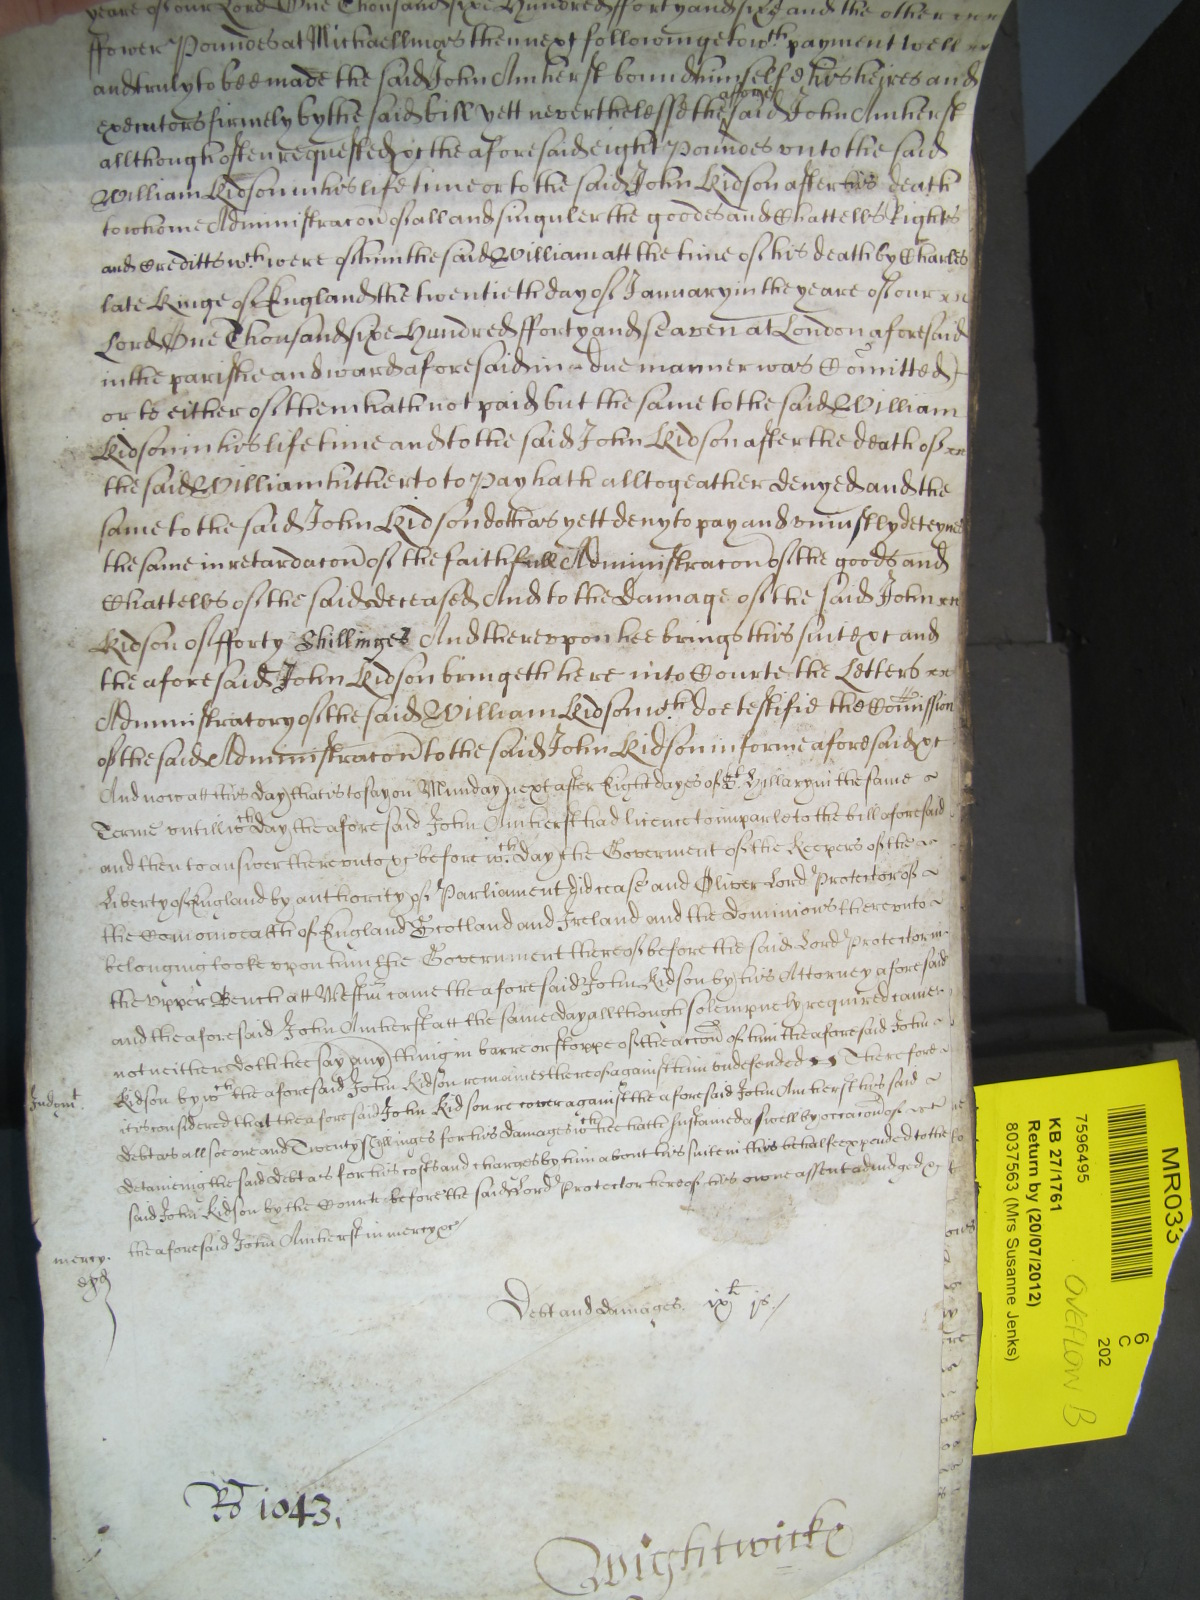 yeare of our Lord One Thousand sixe Hundred fforty and sixe and the other
ffower Poundes at Michaellmas then next followinge to wch payment well
and truly to bee made the said John Amherst bound himself & his heires and
executors firmely by the said bill yett neverthelesse the said John Amherst
allthough often requested &c the aforesaid eight Poundes unto the said
William Kidson in his life time or to the said John Kidson after his death
to whome Administracon of all and singuler the goodes and Chattells Rights
and Creditts wch were of him the said William att the time of his death by Charles
late Kinge of England the twentieth day of January in the yeare of our
Lord One Thousand sixe Hundred fforty and seaven at London aforesaid
in the parishe and ward aforesaid in due manner was Comitted)
or to either of them hath not paid but the same to the said William
Kidson in his life time and to the said John Kidson after the death of
the said William hitherto to Pay hath alltogeather denyed and the
same to the said John Kidson doth as yett deny to pay and uniustly deteyne
the same in retardacon of the faithfull Administracon of the goods and
Chattells of the said deceased And to the Damage of the said John
Kidson of fforty Shillinges And thereupon hee brings this suit &c and
the aforesaid John Kidson bringeth here into Courte the Letters
Administratory of the said William Kidson wch doe testifie the Comission
of the said Administracon to the said John Kidson in forme aforesaid &c
And now att this day that is to say on Munday next after Eight dayes of St. Hillary in the same
Terme untill wch day the aforesaid John Amherst had licence to imparle to the bill aforesaid
and then to answer thereunto &c before wch day the Goverment of the Keepers of the
Liberty of England by authority of Parliament did cease and Oliver Lord Protector of
the Comonwealth of England Scotland and Ireland and the dominions thereunto
belonging tooke upon him the Government thereof before the said Lord Protector in
the upper Bench att Westmr came the aforesaid John Kidson by his Attorney aforesaid
and the aforesaid John Amherst att the same day allthough solempnely required came
not neither doth hee say any thing in barre or stoppe of the accon of him the aforesaid John
Kidson by wch the aforesaid John Kidson remaines thereof against him undefended Therefore
Judgmt. it is considered that the aforesaid John Kidson recover against the aforesaid John Amherst his said
debt as allsoe one and Twenty shillinges for his damages wch hee hath sustained aswell by occacon of
detaineing the said debt as for his costs and charges by him about his suite in this behalfe expended to the
said John Kidson by the Courte before the said Lord Protector here of his owne assent adiudged &c
mercy. the aforesaid John Amherst in mercy &c
Debt and damages. ixli js./
Ro 1043.
Wightwick
MR033
6
C
202
7596495
KB 27/1761
Return by (20/07/2012)
8037563 (Mrs Susanne Jenks)
OVEFLOW B